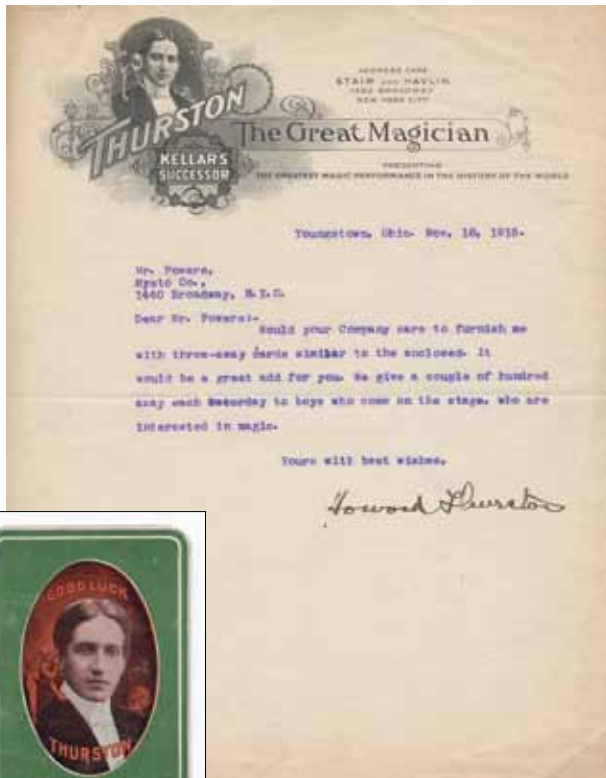 THURSTON
KELLAR'S
SUCCESSOR
ADDRESS CARE
STAIR AND HAVLIN
BROADWAY
NEW YORK CITY
The Great Magician
PRESENTING
THE GREATEST MAGIC PERFORMANCE IN THE HISTORY OF THE WORLD
Youngstown, Ohio. Nov.
Mr. Powers,
Mysto Co.,
1460 Broadway, N.Y.C.
Dear Mr. Powers:-
Would your Company care to furnish me
with throw-away cards similar to the enclosed. It
would be a great add for you. We give a couple of hundred
away each Saturday to boys who come on the stage, who are
interested in magic.
Yours with best wishes,
Howard Thurston
GOOD LUCK
THURSTON